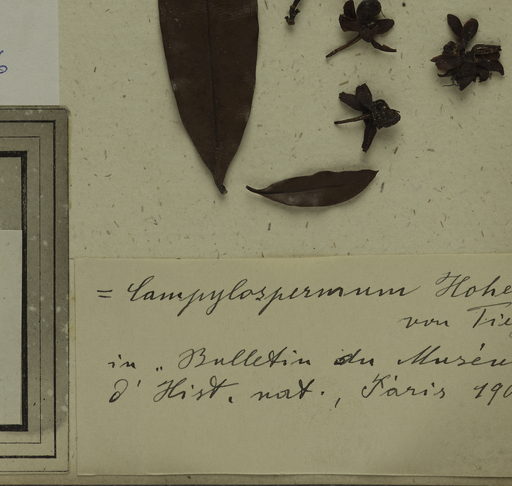 = Campylospermum Hohe
von Tie
in „ Bulletin du Muséu
d' Hist. nat., Paris 190